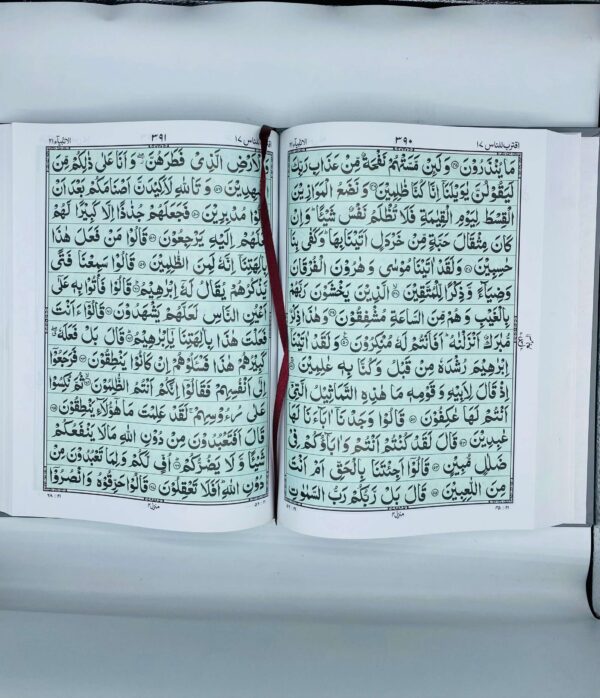 اقترب للناس ١٧
٣٩٠
الانبيآء ٢١
مَا يُنْذَرُوْنَ ۞ وَلَىِٕنْ مَّسَّتْهُمْ نَفْحَةٌ مِّنْ عَذَابِ رَبِّكَ
لَيَقُوْلُنَّ يٰوَيْلَنَاۤ اِنَّا كُنَّا ظٰلِمِيْنَ ۞ وَنَضَعُ الْمَوَازِيْنَ
الْقِسْطَ لِيَوْمِ الْقِيٰمَةِ فَلَا تُظْلَمُ نَفْسٌ شَيْـًٔا ؕ وَاِنْ
كَانَ مِثْقَالَ حَبَّةٍ مِّنْ خَرْدَلٍ اَتَيْنَا بِهَا ؕ وَكَفٰى بِنَا
حٰسِبِيْنَ ۞ وَلَقَدْ اٰتَيْنَا مُوْسٰى وَهٰرُوْنَ الْفُرْقَانَ
وَضِيَآءً وَّذِكْرًا لِّلْمُتَّقِيْنَ ۞ الَّذِيْنَ يَخْشَوْنَ رَبَّهُمْ
بِالْغَيْبِ وَهُمْ مِّنَ السَّاعَةِ مُشْفِقُوْنَ ۞ وَهٰذَا ذِكْرٌ
مُّبٰرَكٌ اَنْزَلْنٰهُ ؕ اَفَاَنْتُمْ لَهٗ مُنْكِرُوْنَ ۞ وَلَقَدْ اٰتَيْنَاۤ
اِبْرٰهِيْمَ رُشْدَهٗ مِنْ قَبْلُ وَكُنَّا بِهٖ عٰلِمِيْنَ ۞
اِذْ قَالَ لِاَبِيْهِ وَقَوْمِهٖ مَا هٰذِهِ التَّمَاثِيْلُ الَّتِيْۤ
اَنْتُمْ لَهَا عٰكِفُوْنَ ۞ قَالُوْا وَجَدْنَاۤ اٰبَآءَنَا لَهَا
عٰبِدِيْنَ ۞ قَالَ لَقَدْ كُنْتُمْ اَنْتُمْ وَاٰبَآؤُكُمْ فِيْ
ضَلٰلٍ مُّبِيْنٍ ۞ قَالُوْۤا اَجِئْتَنَا بِالْحَقِّ اَمْ اَنْتَ
مِنَ اللّٰعِبِيْنَ ۞ قَالَ بَلْ رَّبُّكُمْ رَبُّ السَّمٰوٰتِ
منزل ٤
اقترب للناس ١٧
٣٩١
الانبيآء ٢١
وَالْاَرْضِ الَّذِيْ فَطَرَهُنَّ ۖ وَاَنَا عَلٰى ذٰلِكُمْ مِّنَ
الشّٰهِدِيْنَ ۞ وَتَاللّٰهِ لَاَكِيْدَنَّ اَصْنَامَكُمْ بَعْدَ اَنْ
تُوَلُّوْا مُدْبِرِيْنَ ۞ فَجَعَلَهُمْ جُذٰذًا اِلَّا كَبِيْرًا لَّهُمْ
لَعَلَّهُمْ اِلَيْهِ يَرْجِعُوْنَ ۞ قَالُوْا مَنْ فَعَلَ هٰذَا
بِاٰلِهَتِنَاۤ اِنَّهٗ لَمِنَ الظّٰلِمِيْنَ ۞ قَالُوْا سَمِعْنَا فَتًى
يَّذْكُرُهُمْ يُقَالُ لَهٗۤ اِبْرٰهِيْمُ ۞ قَالُوْا فَاْتُوْا بِهٖ عَلٰۤى
اَعْيُنِ النَّاسِ لَعَلَّهُمْ يَشْهَدُوْنَ ۞ قَالُوْۤا ءَاَنْتَ
فَعَلْتَ هٰذَا بِاٰلِهَتِنَا يٰۤاِبْرٰهِيْمُ ۞ قَالَ بَلْ فَعَلَهٗ ۖ
كَبِيْرُهُمْ هٰذَا فَسْـَٔلُوْهُمْ اِنْ كَانُوْا يَنْطِقُوْنَ ۞ فَرَجَعُوْۤا
اِلٰۤى اَنْفُسِهِمْ فَقَالُوْۤا اِنَّكُمْ اَنْتُمُ الظّٰلِمُوْنَ ۞ ثُمَّ نُكِسُوْا
عَلٰى رُءُوْسِهِمْ ۚ لَقَدْ عَلِمْتَ مَا هٰۤؤُلَآءِ يَنْطِقُوْنَ ۞
قَالَ اَفَتَعْبُدُوْنَ مِنْ دُوْنِ اللّٰهِ مَا لَا يَنْفَعُكُمْ
شَيْـًٔا وَّلَا يَضُرُّكُمْ ۞ اُفٍّ لَّكُمْ وَلِمَا تَعْبُدُوْنَ مِنْ
دُوْنِ اللّٰهِ ؕ اَفَلَا تَعْقِلُوْنَ ۞ قَالُوْا حَرِّقُوْهُ وَانْصُرُوْۤا
منزل ٤